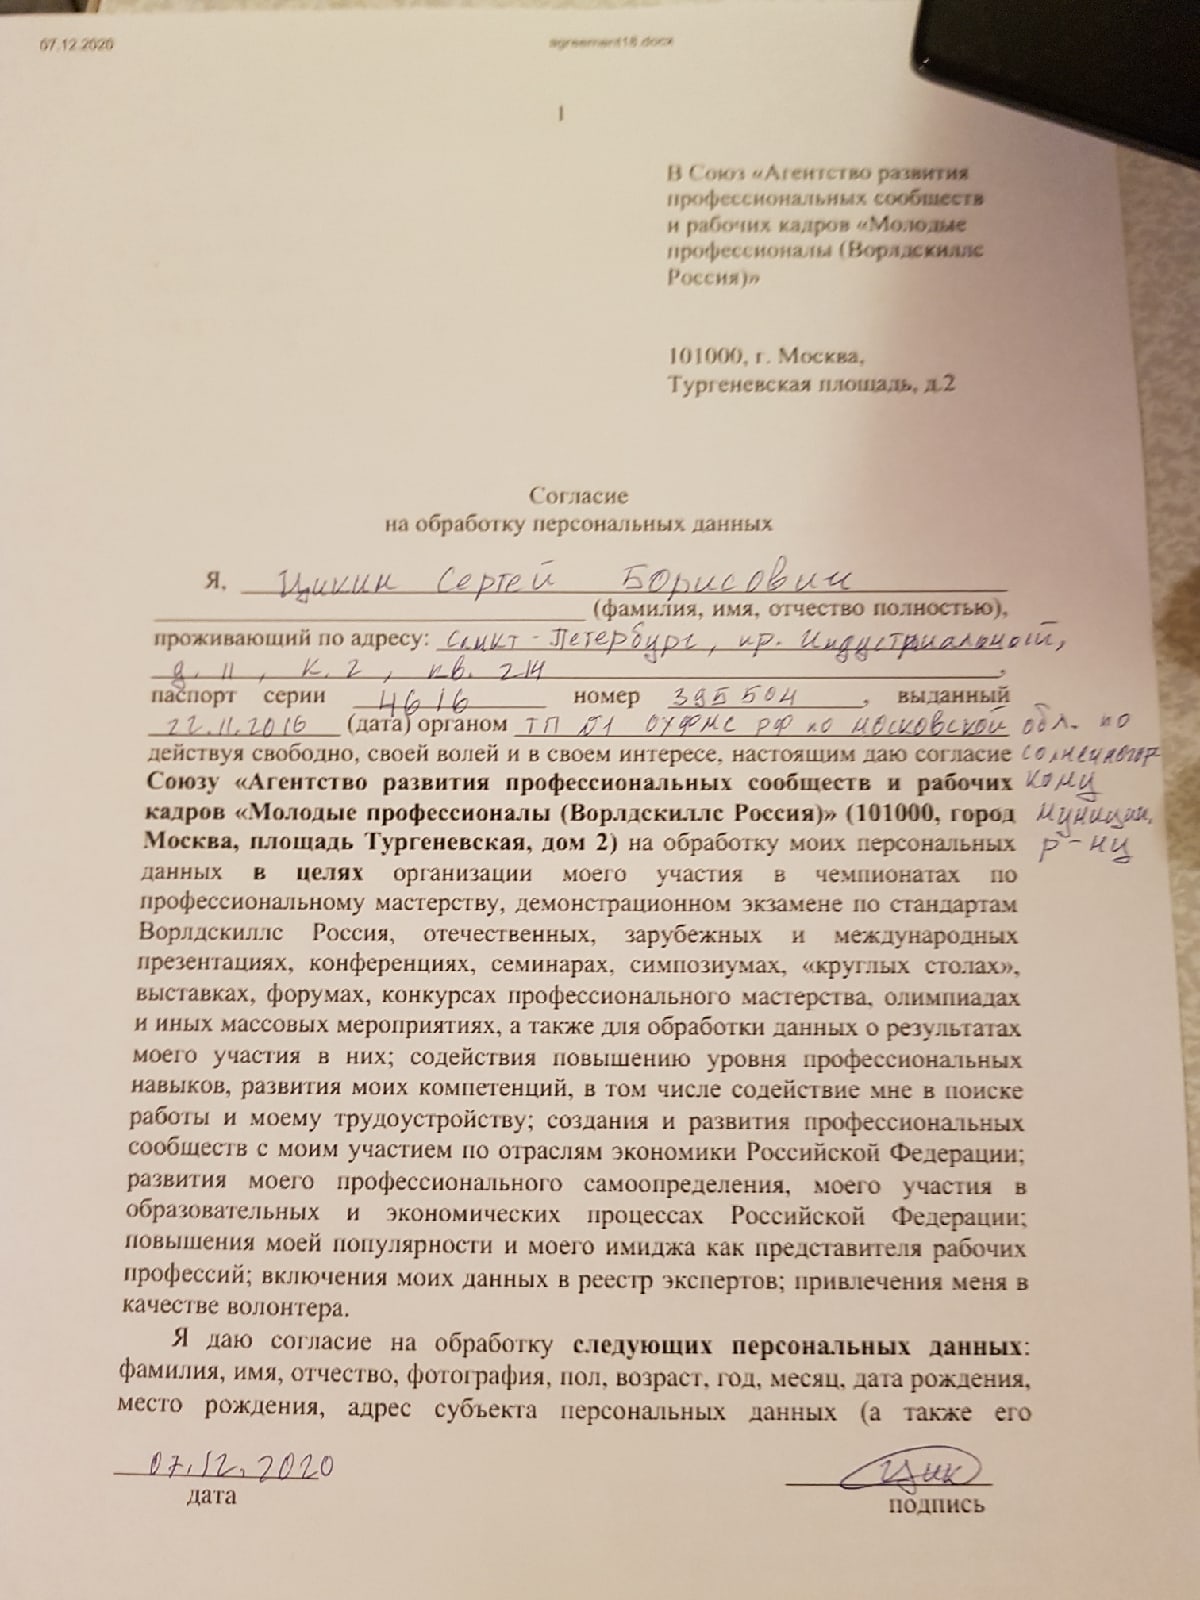 07.12.2020
agreement18.docx
1
В Союз «Агентство развития
профессиональных сообществ
и рабочих кадров «Молодые
профессионалы (Ворлдскиллс
Россия)»
101000, г. Москва,
Тургеневская площадь, д.2
Согласие
на обработку персональных данных
Я, Цикин Сергей Борисович
(фамилия, имя, отчество полностью),
проживающий по адресу: Санкт-Петербург, пр. Индустриальной,
д. 11, к. 2, кв. 214,
паспорт серии 4616 номер 395504, выданный
22.11.2016 (дата) органом ТП №1 ОУФМС РФ по московской обл. по
действуя свободно, своей волей и в своем интересе, настоящим даю согласие солнечногор
Союзу «Агентство развития профессиональных сообществ и рабочих кому
кадров «Молодые профессионалы (Ворлдскиллс Россия)» (101000, город муницип.
Москва, площадь Тургеневская, дом 2) на обработку моих персональных р-ну
данных в целях организации моего участия в чемпионатах по
профессиональному мастерству, демонстрационном экзамене по стандартам
Ворлдскиллс Россия, отечественных, зарубежных и международных
презентациях, конференциях, семинарах, симпозиумах, «круглых столах»,
выставках, форумах, конкурсах профессионального мастерства, олимпиадах
и иных массовых мероприятиях, а также для обработки данных о результатах
моего участия в них; содействия повышению уровня профессиональных
навыков, развития моих компетенций, в том числе содействие мне в поиске
работы и моему трудоустройству; создания и развития профессиональных
сообществ с моим участием по отраслям экономики Российской Федерации;
развития моего профессионального самоопределения, моего участия в
образовательных и экономических процессах Российской Федерации;
повышения моей популярности и моего имиджа как представителя рабочих
профессий; включения моих данных в реестр экспертов; привлечения меня в
качестве волонтера.
Я даю согласие на обработку следующих персональных данных:
фамилия, имя, отчество, фотография, пол, возраст, год, месяц, дата рождения,
место рождения, адрес субъекта персональных данных (а также его
07.12.2020 Цик
дата подпись